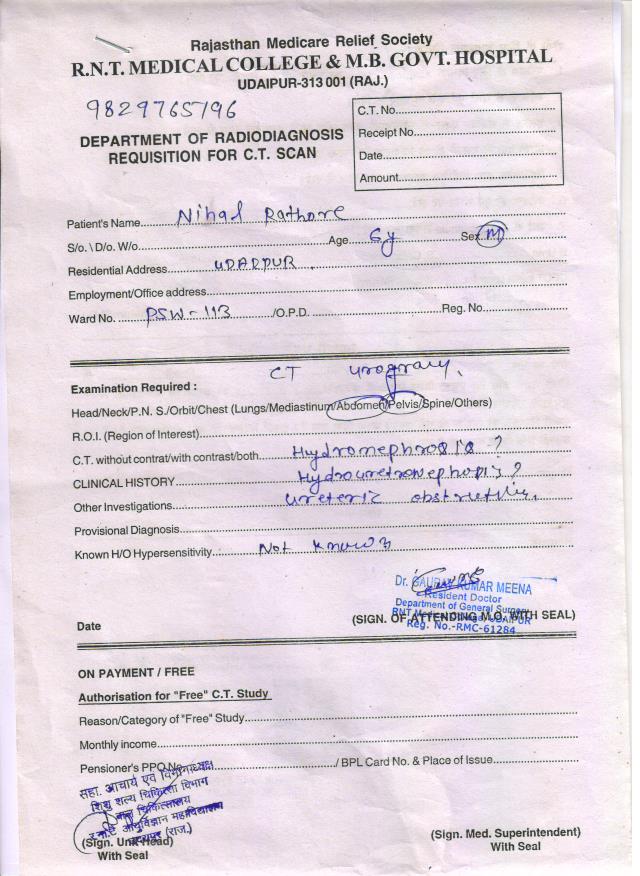 Rajasthan Medicare Relief Society
R.N.T. MEDICAL COLLEGE & M.B. GOVT. HOSPITAL
UDAIPUR-313 001 (RAJ.)
9829765796
DEPARTMENT OF RADIODIAGNOSIS
REQUISITION FOR C.T. SCAN
C.T. No.
Receipt No.
Date
Amount
Patient's Name Nihal Rathore
S/o. \ D/o. W/o Age 6y Sex M
Residential Address UDAIPUR
Employment/Office address
Ward No. PSW-113 /O.P.D. Reg. No.
CT urograwy.
Examination Required :
Head/Neck/P.N. S./Orbit/Chest (Lungs/Mediastinum/Abdomen/Pelvis/Spine/Others)
R.O.I. (Region of Interest)
C.T. without contrat/with contrast/both Hydronephrosis ?
CLINICAL HISTORY Hydroureteronephosis ?
Other Investigations Ureteric obstruction.
Provisional Diagnosis
Known H/O Hypersensitivity Not known
Dr. GAURAV KUMAR MEENA
Resident Doctor
Department of General Surgery
RNT Medical College, UDAIPUR
Reg. No.-RMC-61284
Date (SIGN. OF ATTENDING M.O. WITH SEAL)
ON PAYMENT / FREE
Authorisation for "Free" C.T. Study
Reason/Category of "Free" Study
Monthly income
Pensioner's PPO No. / BPL Card No. & Place of Issue
सहा. आचार्य एवं विभागाध्यक्ष
शिशु शल्य चिकित्सा विभाग
बाल चिकित्सालय
आयुर्विज्ञान महाविद्यालय
उदयपुर (राज.)
(Sign. Unit Head) (Sign. Med. Superintendent)
With Seal With Seal